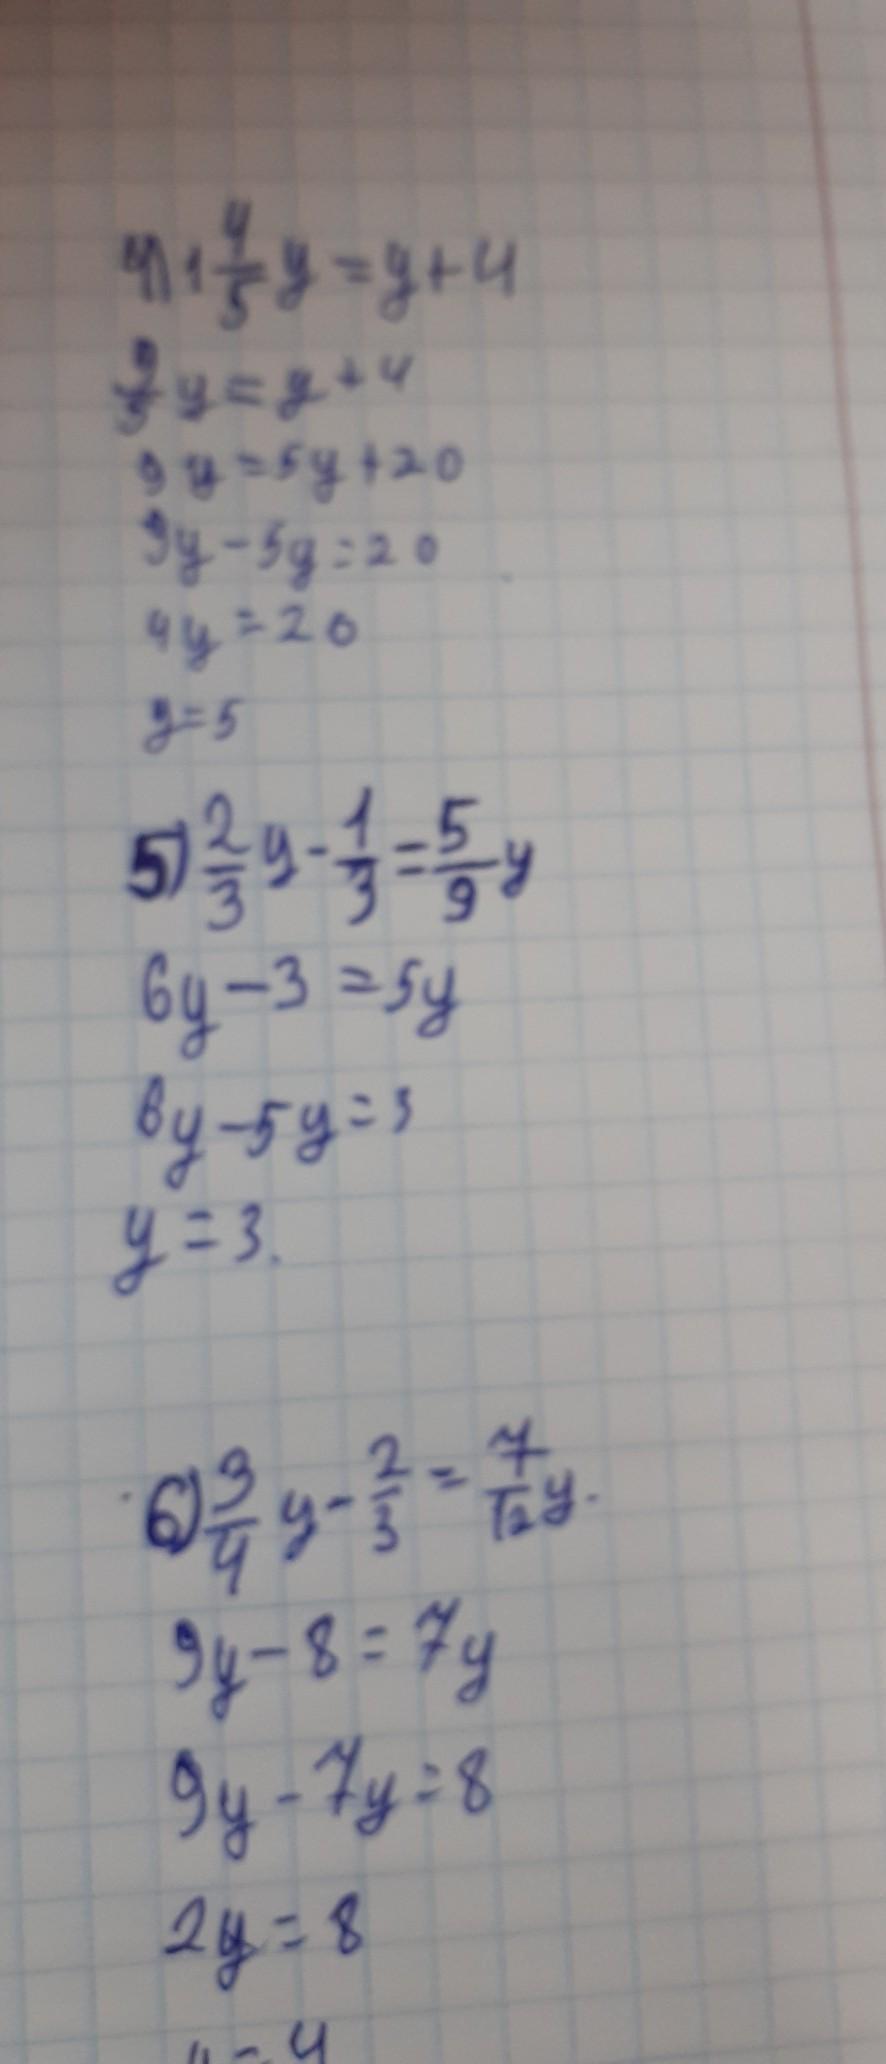 4) 1 4/5 y = y + 4
9/5 y = y + 4
9y = 5y + 20
9y - 5y = 20
4y = 20
y = 5
5) 2/3 y - 1/3 = 5/9 y
6y - 3 = 5y
6y - 5y = 3
y = 3.
6) 3/4 y - 2/3 = 7/12 y.
9y - 8 = 7y
9y - 7y = 8
2y = 8
y = 4